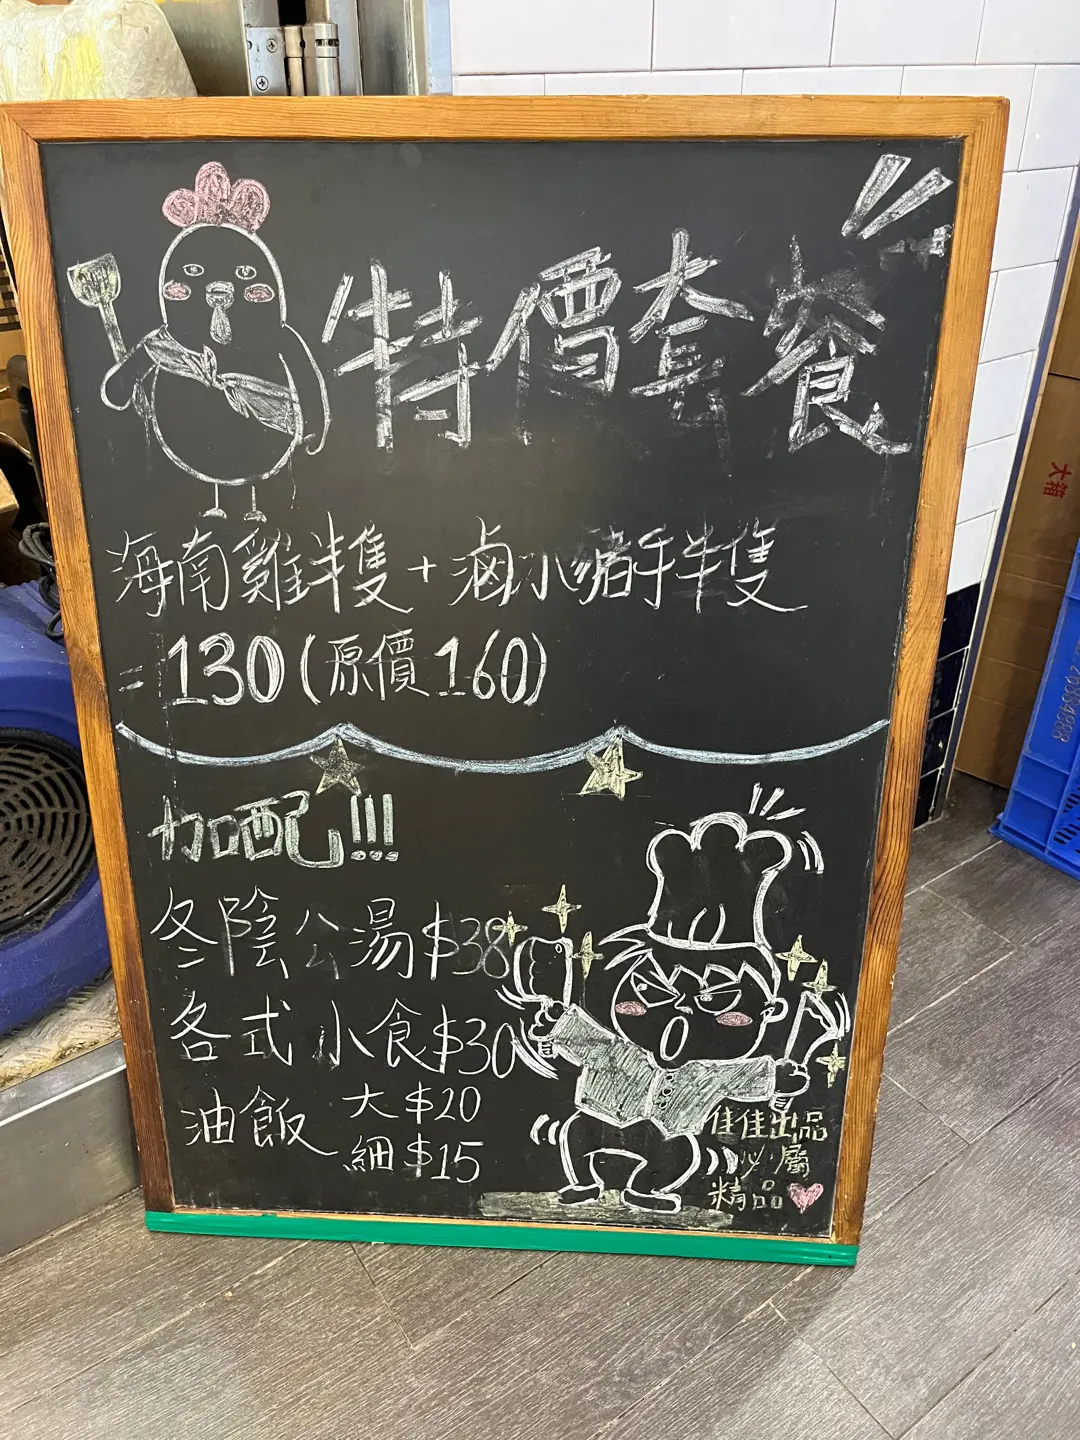 特價套餐
海南雞半隻+滷水豬手半隻
=130(原價160)
加配!!!
冬陰公湯$38
各式小食$30
油飯 大$20
細$15
佳佳出品
必屬
精品
大箱